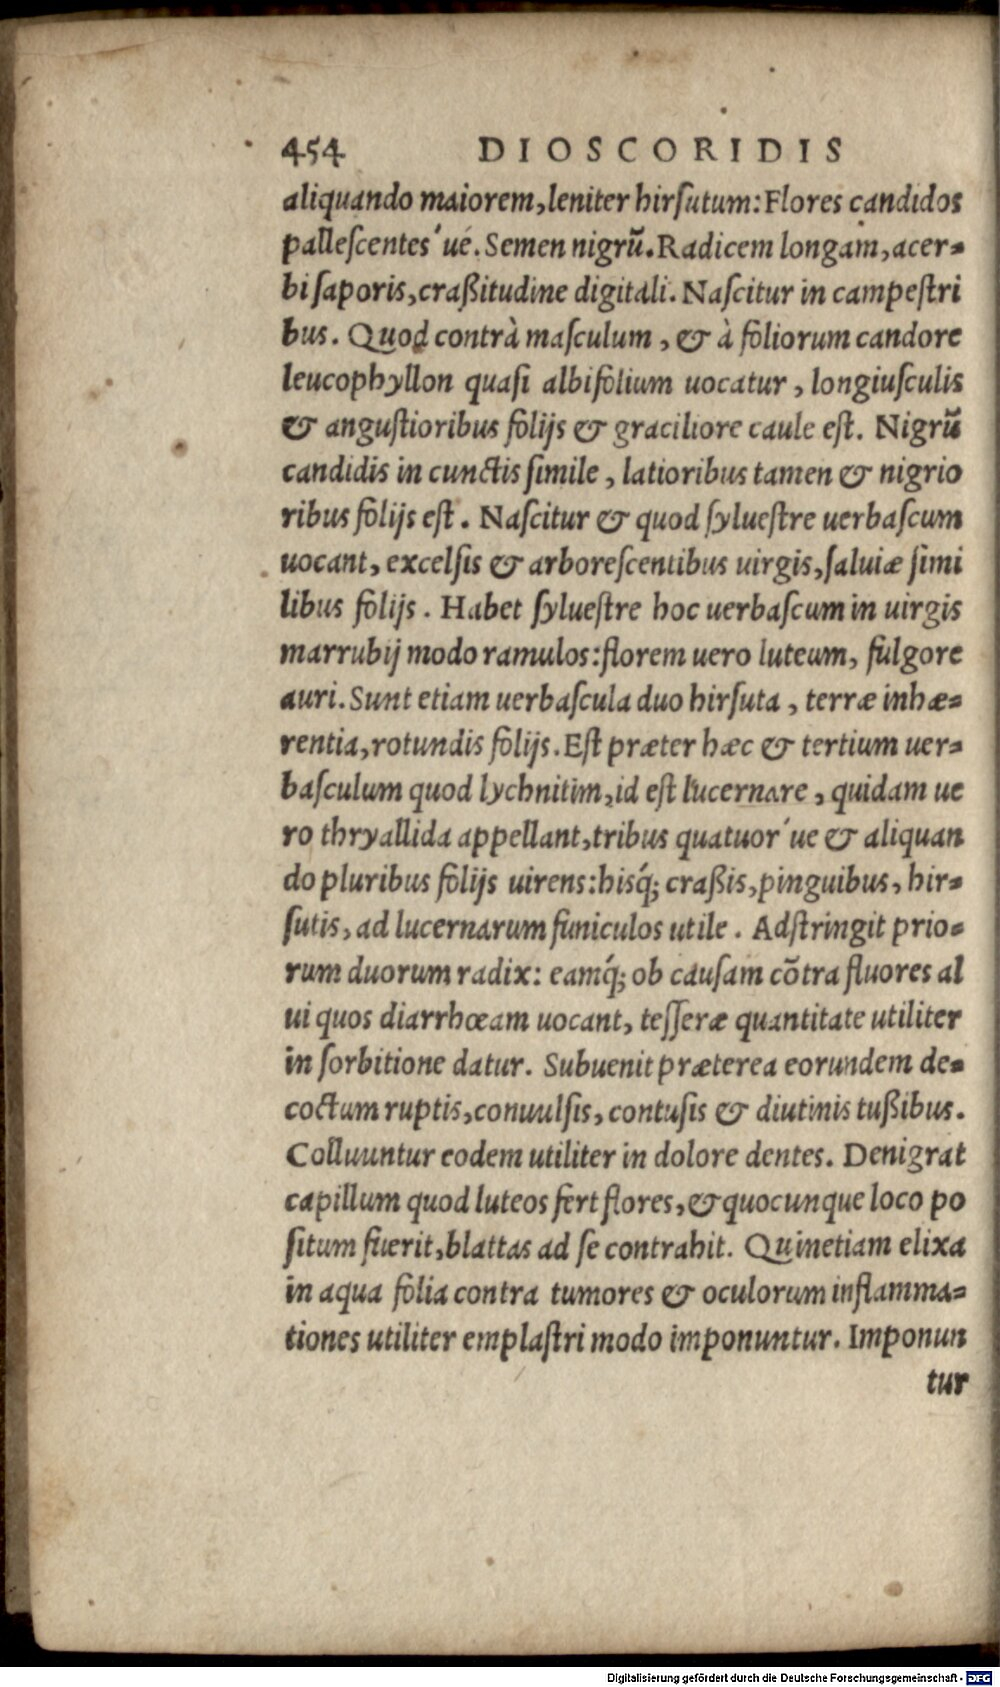 454 DIOSCORIDIS
aliquando maiorem, leniter hirſutum: Flores candidos
palleſcentes'ué. Semen nigrũ. Radicem longam, acer-
bi ſaporis, craßitudine digitali. Naſcitur in campeſtri
bus. Quod contrà maſculum, & à foliorum candore
leucophyllon quaſi albifolium uocatur, longiuſculis
& anguſtioribus folijs & graciliore caule eſt. Nigrũ
candidis in cunctis ſimile, latioribus tamen & nigrio
ribus folijs eſt. Naſcitur & quod ſylueſtre uerbaſcum
uocant, excelſis & arboreſcentibus uirgis, ſaluiæ ſimi
libus folijs. Habet ſylueſtre hoc uerbaſcum in uirgis
marrubij modo ramulos: florem uero luteum, fulgore
auri. Sunt etiam uerbaſcula duo hirſuta, terræ inhæ-
rentia, rotundis folijs. Eſt præter hæc & tertium uer-
baſculum quod lychnitim, id eſt lucernare, quidam ue
ro thryallida appellant, tribus quatuor'ue & aliquan
do pluribus folijs uirens: hisq́; craßis, pinguibus, hir-
ſutis, ad lucernarum funiculos utile. Adſtringit prio-
rum duorum radix: eamq́; ob cauſam cõtra fluores al
ui quos diarrhœam uocant, teſſeræ quantitate utiliter
in ſorbitione datur. Subuenit præterea eorundem de-
coctum ruptis, conuulſis, contuſis & diutinis tußibus.
Colluuntur eodem utiliter in dolore dentes. Denigrat
capillum quod luteos fert flores, & quocunque loco po
ſitum fuerit, blattas ad ſe contrahit. Quinetiam elixa
in aqua folia contra tumores & oculorum inflamma-
tiones utiliter emplaſtri modo imponuntur. Imponun
tur
Digitalisierung gefördert durch die Deutsche Forschungsgemeinschaft - DFG